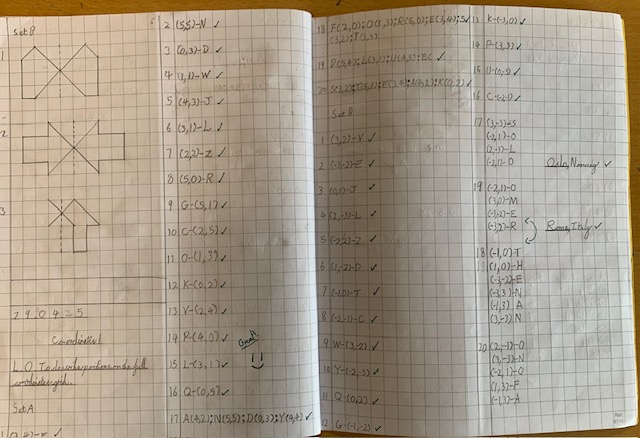 Set B
1
2
3
2 9 . 0 4 . 2 5
Coordinates 1
L.O. To describe positions on the full
coordinate grid.
Set A
2 (5,5)-N ✓
3 (0,3)-D ✓
4 (1,1)-W ✓
5 (4,3)-J ✓
6 (3,1)-L ✓
7 (2,2)-Z ✓
8 (5,0)-R ✓
9 G-(5,1) ✓
10 C-(2,5) ✓
11 O-(1,3) ✓
12 K-(0,2) ✓
13 V-(2,4) ✓
14 P-(4,0) ✓
15 L-(3,1) ✓
16 Q-(0,5) ✓
17 A(4,2); N(5,5); D(0,3); Y(4,4) ✓
18 F(2,0); O(1,3); R(5,0); E(3,4); S
(3,2); T(3,3)
Set B
1 (3,2)-V ✓
2 (-3,-2)-E ✓
3 (0,1)-J ✓
4 (2,-3)-L ✓
5 (-2,2)-Z ✓
6 (1,-2)-D ✓
7 (-1,0)-T ✓
8 (-2,-1)-C ✓
9 W-(3,-2) ✓
10 Y-(-2,-3) ✓
11 Q-(0,2) ✓
12 G-(-1,-2) ✓
13 K-(-3,0) ✓
14 P-(3,3) ✓
15 U-(0,-3) ✓
16 C-(-2,-1) ✓
17 (3,-3)-S
(-2,1)-O
(2,-3)-L
(-2,1)-O Oslo, Norway ✓
19 (-2,1)-O
(3,0)-M
(-3,-2)-E
(-3,2)-R Rome, Italy ✓
18 (-1,0)-T
(1,0)-H
(-3,-2)-E
(-3,3)-N
(-1,3) A
(3,-3) N
20 (2,-1)-O
(3,-3)-N
(-2,1) O
(1,3)-F
(-1,3)-A